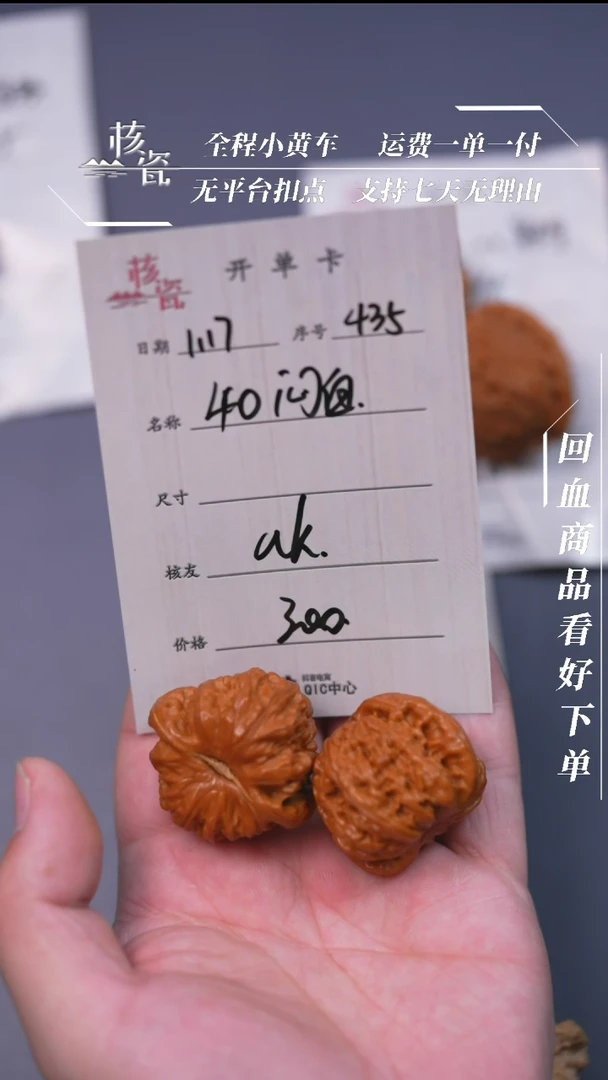 核瓷
全程小黄车 运费一单一付
无平台扣点 支持七天无理由
核瓷
开单卡
日期 11.17 序号 435
名称 40闷
尺寸
核友 uk.
价格 300
抖音电商
QIC中心
回血商品看好下单